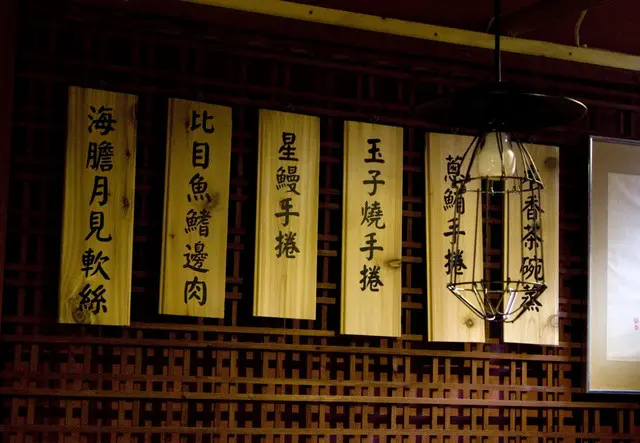 海膽月見軟絲
比目魚鰭邊肉
星鰻手捲
玉子燒手捲
蔥鮪手捲
香茶碗蒸